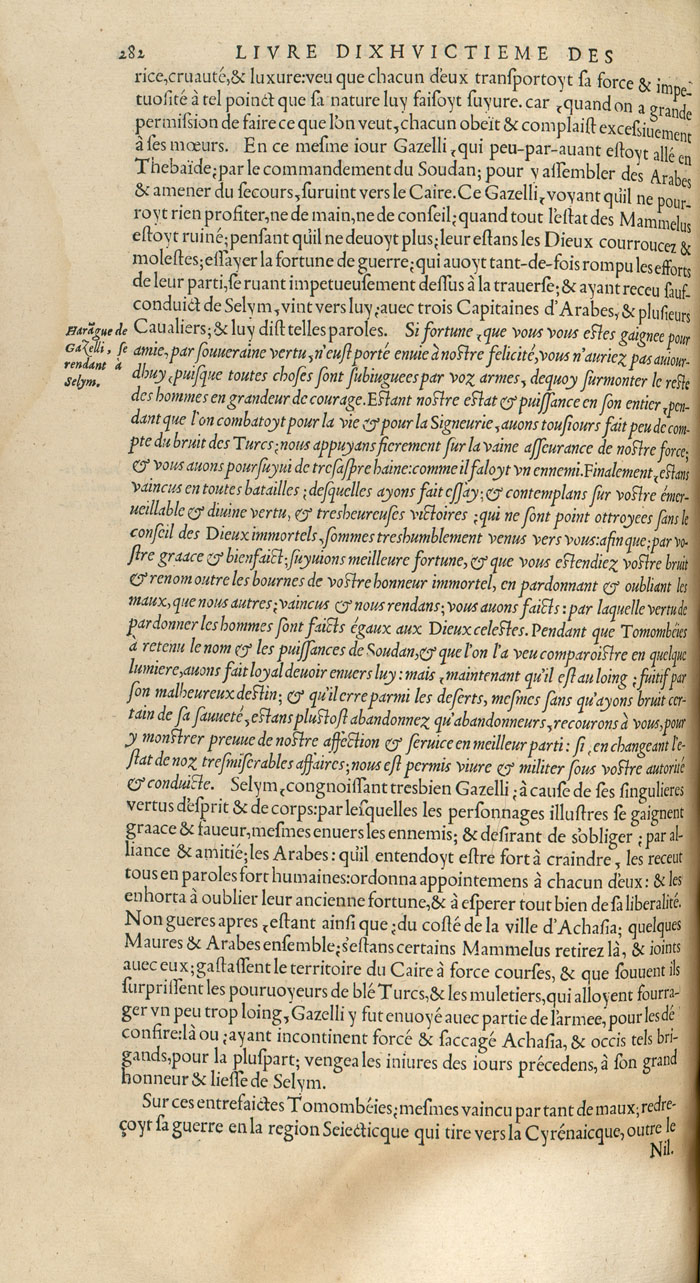 282 LIVRE DIXHVICTIEME DES
rice,cruauté,& luxure:veu que chacun d'eux tranſportoyt ſa force & impe-
tuoſité à tel poinct que ſa nature luy faiſoyt ſuyure. car ,quand on a grande
permiſsion de faire ce que l'on veut,chacun obeït & complaiſt exceſsiuement
à ſes mœurs. En ce meſme iour Gazelli,qui peu-par-auant eſtoyt allé en
Thebaïde;par le commandement du Soudan; pour y aſſembler des Arabes
& amener du ſecours,ſuruint vers le Caire.Ce Gazelli,voyant qu'il ne pour-
royt rien profiter,ne de main,ne de conſeil;quand tout l'eſtat des Mammelus
eſtoyt ruiné;penſant qu'il ne deuoyt plus;leur eſtans les Dieux courroucez &
moleſtes;eſſayer la fortune de guerre;qui auoyt tant-de-fois rompu les efforts
de leur parti,ſe ruant impetueuſement deſſus à la trauerſe;& ayant receu ſauf-
conduict de Selym,vint vers luy;auec trois Capitaines d'Arabes,& pluſieurs
Caualiers;& luy diſt telles paroles. Si fortune ,que vous vous eſtes gaignee pour
Harāgue de
Gazelli, ſe
rendant à
Selym.
amie,par ſouueraine vertu,n'euſt porté enuie à noſtre felicité,vous n'auriez pas auiour-
dhuy,puiſque toutes choſes ſont ſubiuguees par voz armes, dequoy ſurmonter le reſte
des hommes en grandeur de courage.Eſtant noſtre eſtat & puiſſance en ſon entier ,pen-
dant que l'on combatoyt pour la vie & pour la Signeurie,auons touſiours fait peu de com-
pte du bruit des Turcs;nous appuyans fierement ſur la vaine aſſeurance de noſtre force;
& vous auons pourſuyui de treſaſpre haine:comme il faloyt vn ennemi.Finalement,eſtans
vaincus en toutes batailles ;deſquelles ayons fait eſſay;& contemplans ſur voſtre émer-
ueillable & diuine vertu, & tresheureuſes victoires ;qui ne ſont point ottroyees ſans le
conſeil des Dieux immortels,ſommes treshumblement venus vers vous:afin que;par vo-
ſtre graace & bienfaict;ſuyuions meilleure fortune,& que vous eſtendiez voſtre bruit
& renom outre les bournes de voſtre honneur immortel, en pardonnant & oubliant les
maux,que nous autres;vaincus & nous rendans;vous auons faicts : par laquelle vertu de
pardonner les hommes ſont faicts égaux aux Dieux celeſtes.Pendant que Tomombéies
à retenu le nom & les puiſſances de Soudan,& que l'on l'a veu comparoiſtre en quelque
lumiere,auons fait loyal deuoir enuers luy : mais ,maintenant qu'il eſt au loing ;fuitif par
ſon malheureux deſtin; & qu'il erre parmi les deſerts, meſmes ſans qu'ayons bruit cer-
tain de ſa ſauueté,eſtans pluſtoſt abandonnez qu'abandonneurs,recourons à vous,pour
y monſtrer preuue de noſtre affection & ſeruice en meilleur parti : ſi ,en changeant l'e-
ſtat de noz treſmiſerables affaires;nous eſt permis viure & militer ſous voſtre autorité
& conduicte. Selym,congnoiſſant tresbien Gazelli ;à cauſe de ſes ſingulieres
vertus d'eſprit & de corps:par leſquelles les perſonnages illuſtres ſe gaignent
graace & faueur,meſmes enuers les ennemis; & deſirant de s'obliger ; par al-
liance & amitié;les Arabes : qu'il entendoyt eſtre fort à craindre, les receut
tous en paroles fort humaines:ordonna appointemens à chacun d'eux : & les
enhorta à oublier leur ancienne fortune,& à eſperer tout bien de ſa liberalité.
Non gueres apres ,eſtant ainſi que ;du coſté de la ville d'Achaſia; quelques
Maures & Arabes enſemble;s'eſtans certains Mammelus retirez là, & ioints
auec eux;gaſtaſſent le territoire du Caire à force courſes, & que ſouuent ils
ſurpriſſent les pouruoyeurs de blé Turcs,& les muletiers,qui alloyent fourra-
ger vn peu trop loing, Gazelli y fut enuoyé auec partie de l'armee, pour les dé
confire:là ou ;ayant incontinent forcé & ſaccagé Achaſia, & occis tels bri-
gands,pour la pluſpart; vengea les iniures des iours précedens, à ſon grand
honneur & lieſſe de Selym.
Sur ces entrefaictes Tomombéies;meſmes vaincu par tant de maux;redre-
çoyt ſa guerre en la region Seiecticque qui tire vers la Cyrénaicque, outre le
Nil.